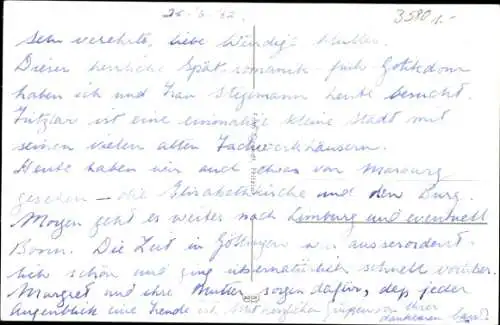 26.6.62.
3580 1.-
Sehr verehrte, liebe Mutter.
Dieser herrliche Spät-romanik-früh Gotikdom
haben ich und Frau Stegemann heute besucht.
Fritzlar ist eine einmalige kleine Stadt mit
seinen vielen alten Fachwerkhäusern.
Heute haben wir auch etwas von Marburg
gesehen - die Elisabethkirche und den Burg.
Morgen geht es weiter nach Limburg und eventuell
Bonn. Die Zeit in Göttingen war ausserordent-
lich schön und ging übernatürlich schnell vorüber.
Margret und ihre Mutter sorgen dafür, daß jeder
Augenblick eine Freude ist. Mit herzlichen Grüssen von Ihrer
dankbaren